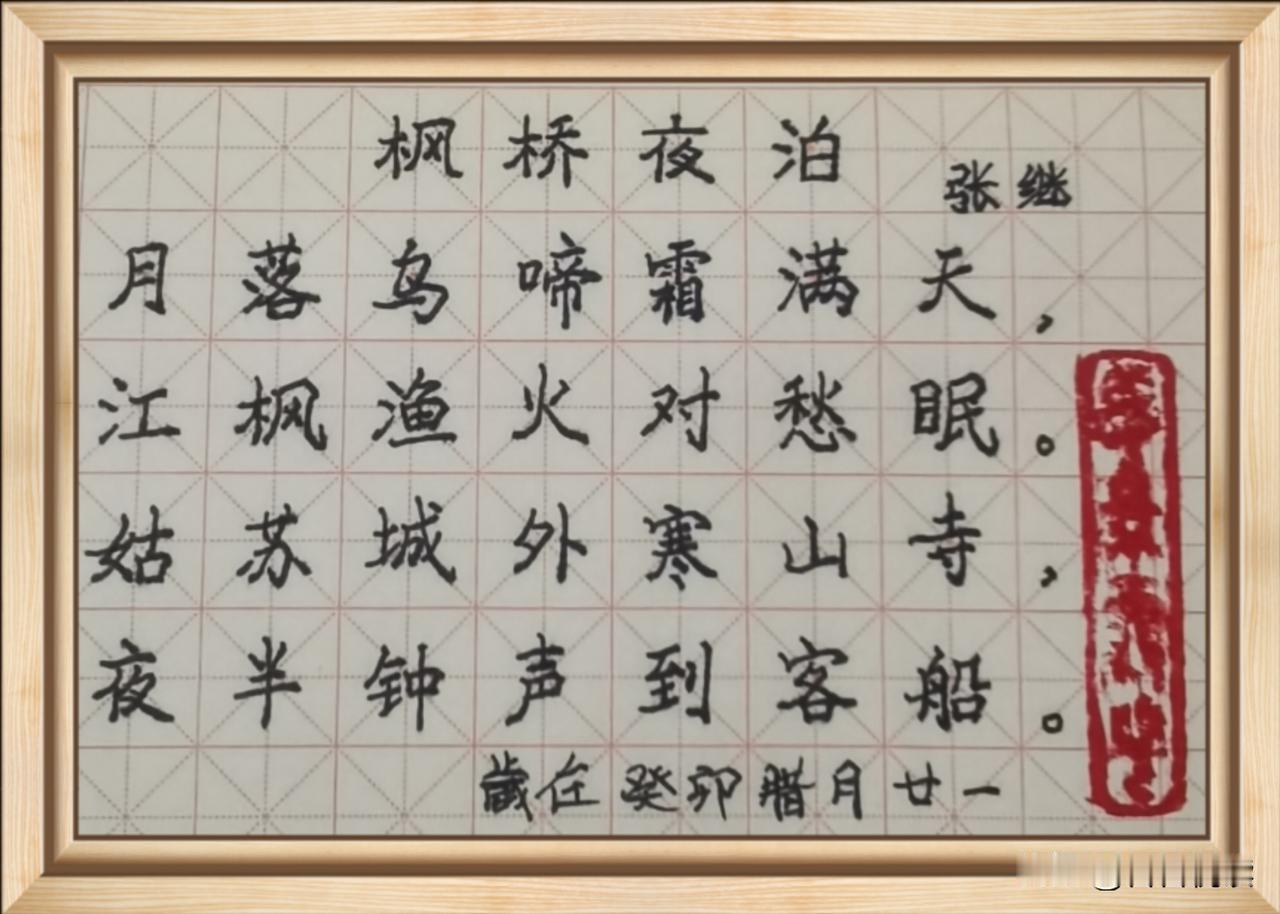 枫桥夜泊
张继
月落乌啼霜满天，
江枫渔火对愁眠。
姑苏城外寒山寺，
夜半钟声到客船。
歲在癸卯腊月廿一